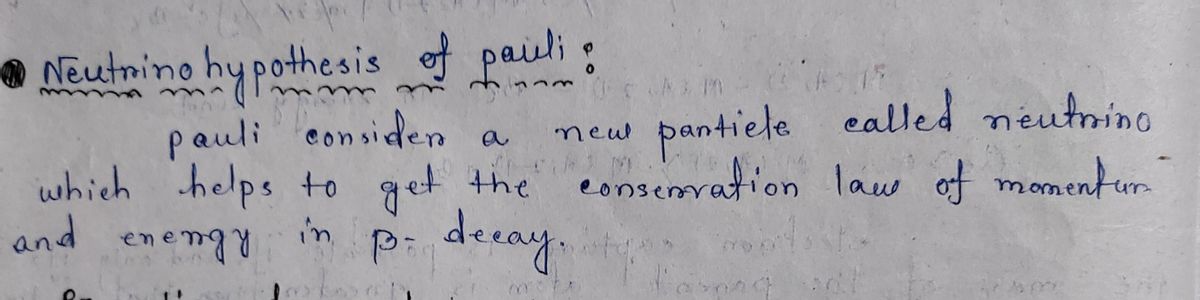 Neutrino hypothesis of pauli :
pauli consider a new particle called neutrino
which helps to get the conservation law of momentum
and energy in β- decay.